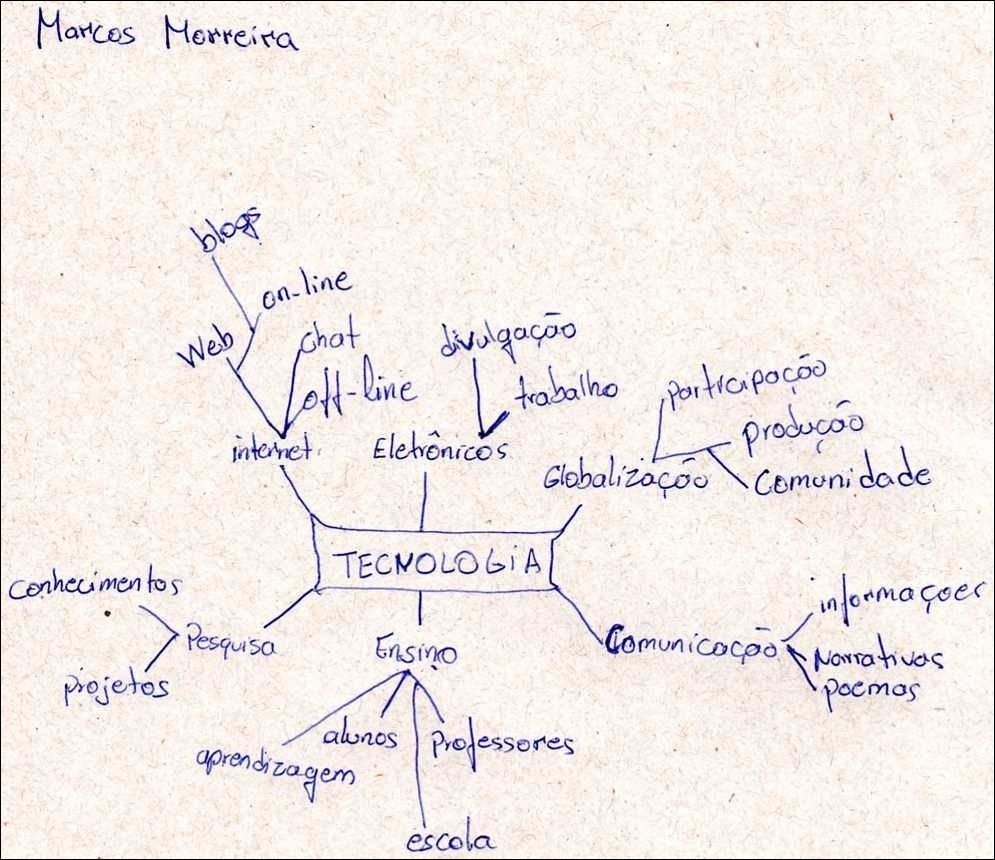 Marcos Morreira
blogs
on-line
Web
chat
off-line
internet
divulgação
trabalho
Eletrônicos
participação
produção
Comunidade
Globalização
TECNOLOGIA
conhecimentos
Pesquisa
projetos
Ensino
aprendizagem
alunos
professores
escola
Comunicação
informaçoes
Narrativas
poemas